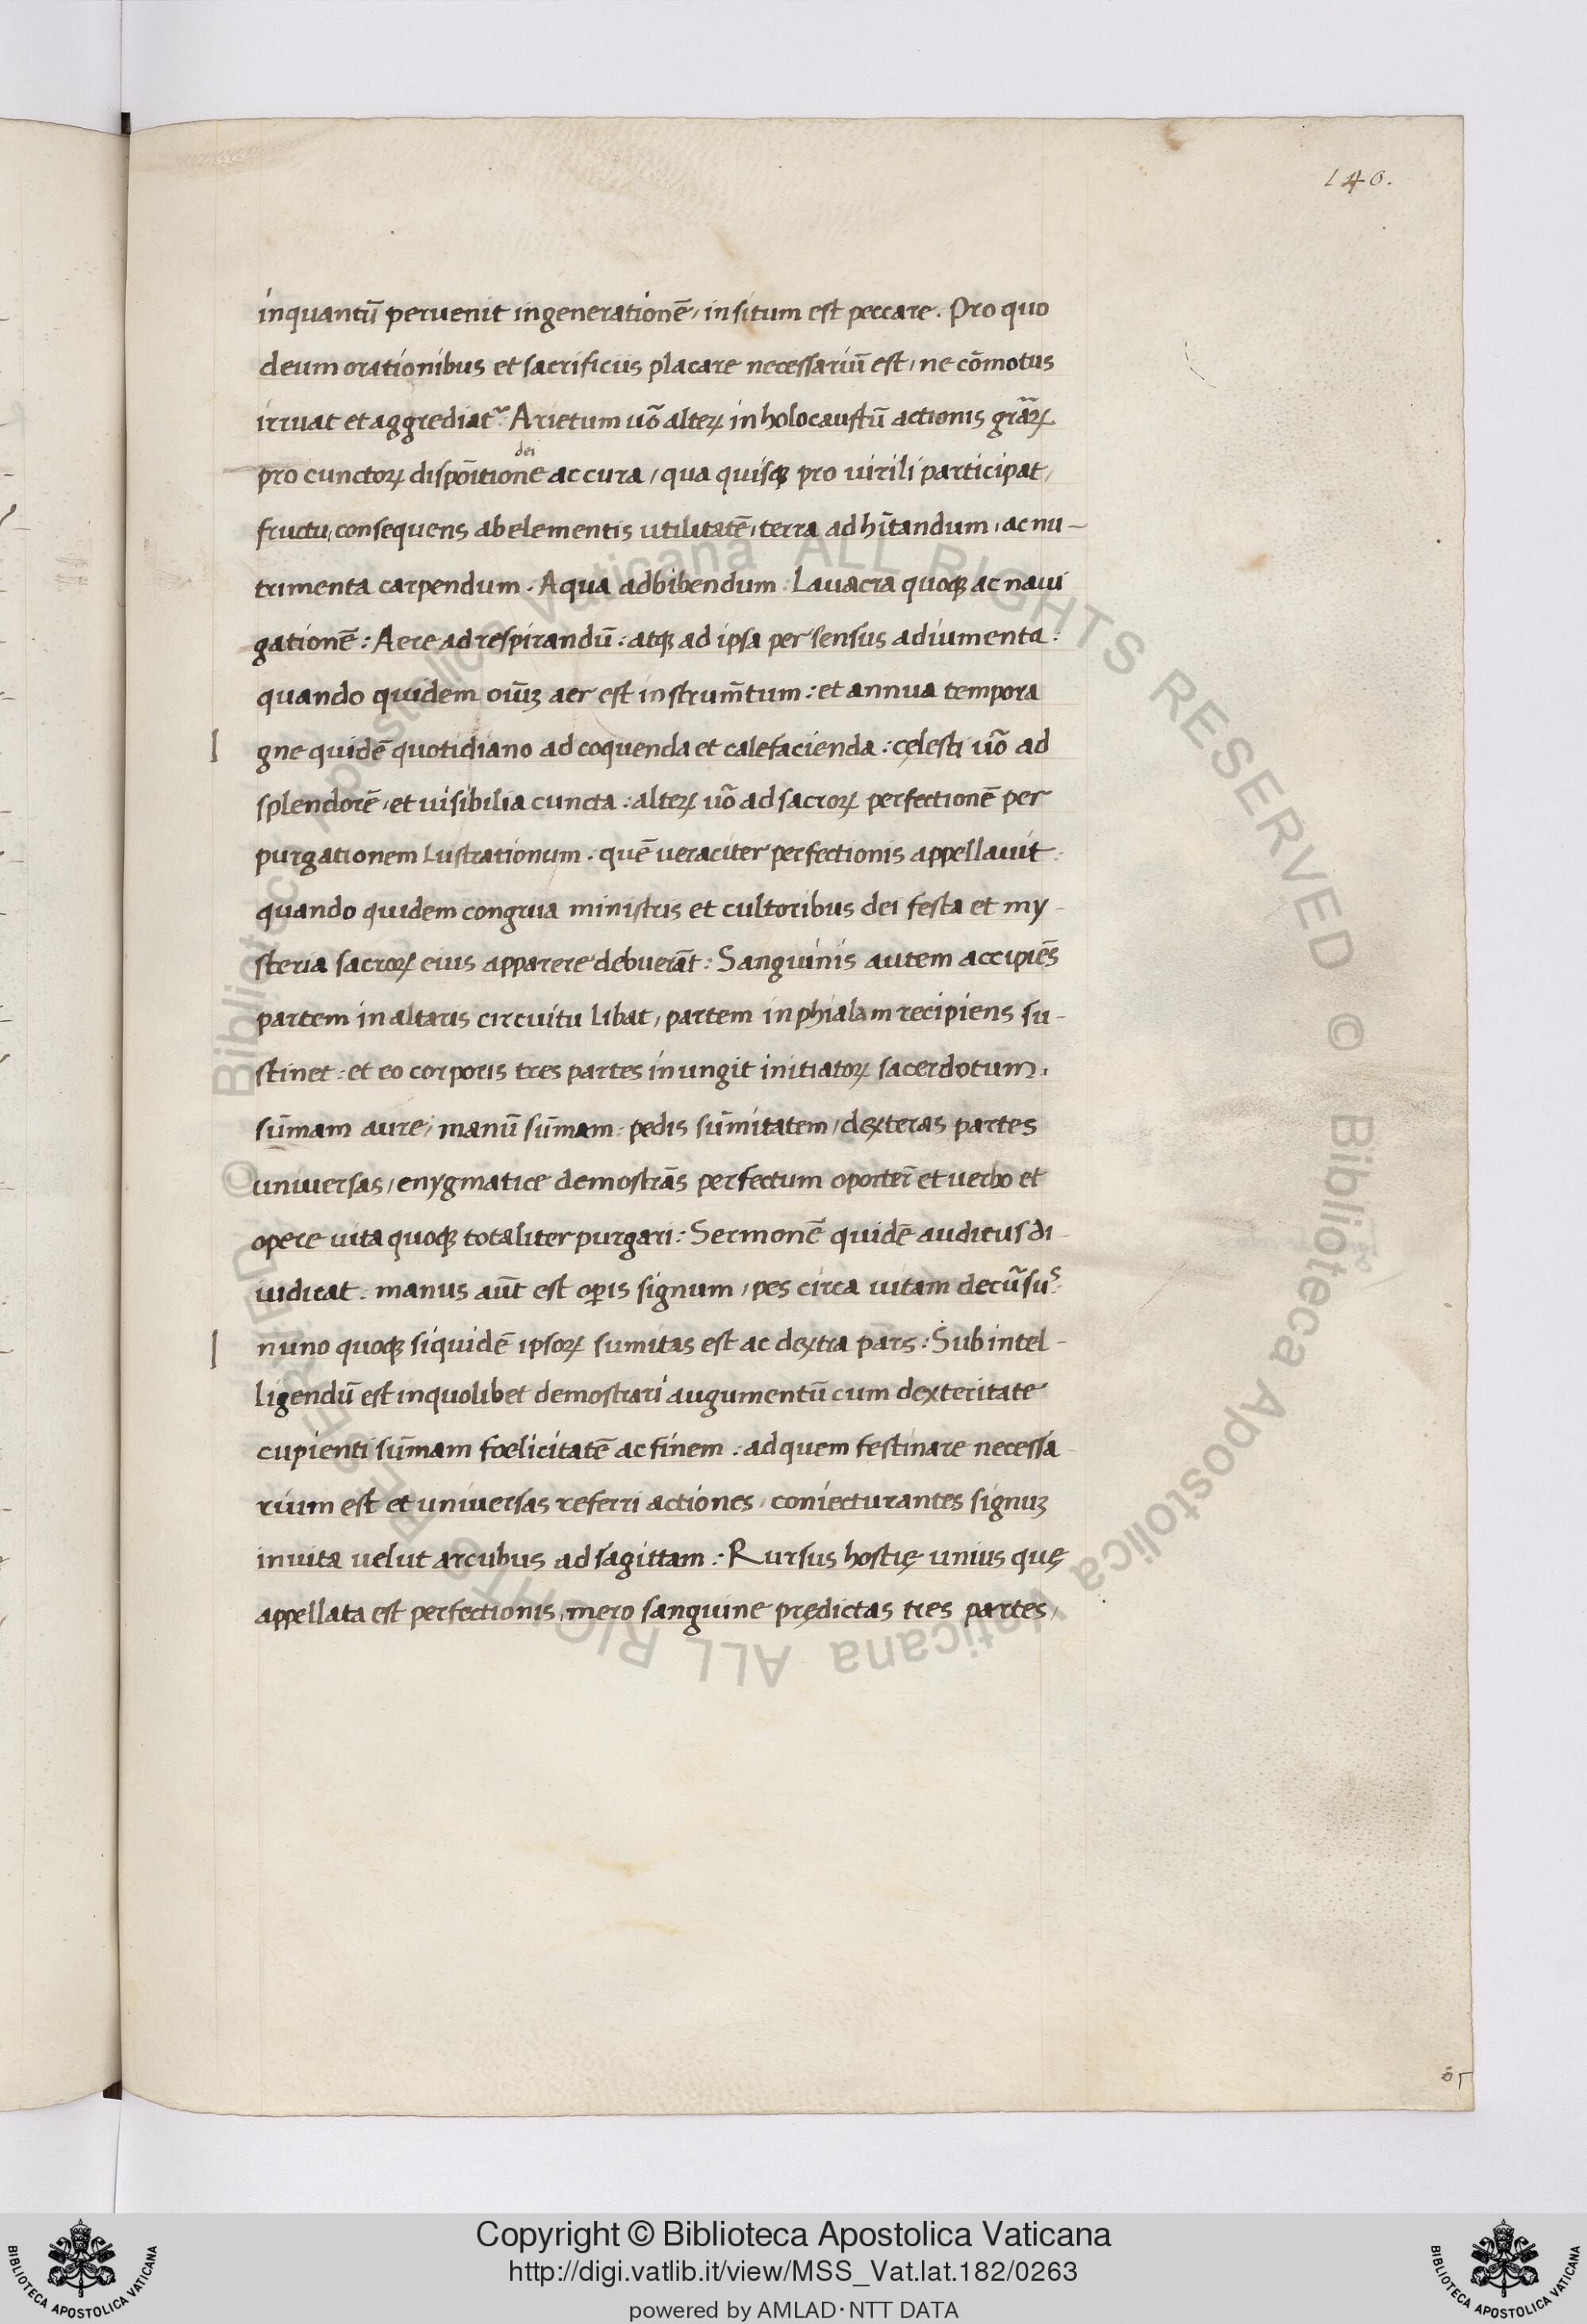 140.
inquantū peruenit ingenerationē, insitum est peccare. Pro quo
deum orationibus et sacrificiis placare necessariū est, ne cōmotus
irruat et aggrediat᷑. Arietum uō alteꝝ in holocaustū actionis grāꝝ
dei
pro cunctoꝝ dispōitione ac cura, qua quisqꝫ pro uirili participat,
fructu, consequens ab elementis utilitatē, terra ad hītandum, ac nu-
trimenta carpendum. Aqua adbibendum: Lauacra quoqꝫ ac naui
gationē: Aere ad respirandū: atqꝫ ad ipsa per sensus adiumenta:
quando quidem oīuꝫ aer est instrum̄tum: et annua tempora
gne quidē quotidiano ad coquenda et calefacienda: cęlesti uō ad
splendorē, et uisibilia cuncta: alteꝝ uō ad sacroꝝ perfectionē per
purgationem lustrationum. quē ueraciter perfectionis appellauit:
quando quidem congrua ministris et cultoribus dei festa et my-
steria sacroꝝ eius apparere debuerāt: Sanguinis autem accipiēs
partem in altaris circuitu libat, partem in phialam recipiens su-
stinet: et eo corporis tres partes inungit initiatoꝝ sacerdotum.
sūmam aure, manū sūmam: pedis sūmitatem, dexteras partes
uniuersas, enygmatice demostrās perfectum oporter̄ et uerbo et
opere uita quoqꝫ totaliter purgari: Sermonē quidē auditus di-
iudicat. manus aūt est oꝑis signum, pes circa uitam decūsus:
nuno quoqꝫ siquidē ipsoꝝ sumitas est ac dextra pars: Sub intel-
ligendū est inquolibet demostrari augumentū cum dexteritate
cupienti sūmam foelicitatē ac finem: ad quem festinare necessa
rium est et uniuersas referri actiones, coniecturantes signuꝫ
inuita uelut arcubus ad sagittam: Rursus hostię unius quę
appellata est perfectionis, mero sanguine prędictas tres partes,
© Biblioteca Apostolica Vaticana ALL RIGHTS RESERVED © Biblioteca Apostolica Vaticana ALL RIGHTS RESERVED
Copyright © Biblioteca Apostolica Vaticana
http://digi.vatlib.it/view/MSS_Vat.lat.182/0263
powered by AMLAD·NTT DATA
BIBLIOTECA APOSTOLICA VATICANA
BIBLIOTECA APOSTOLICA VATICANA